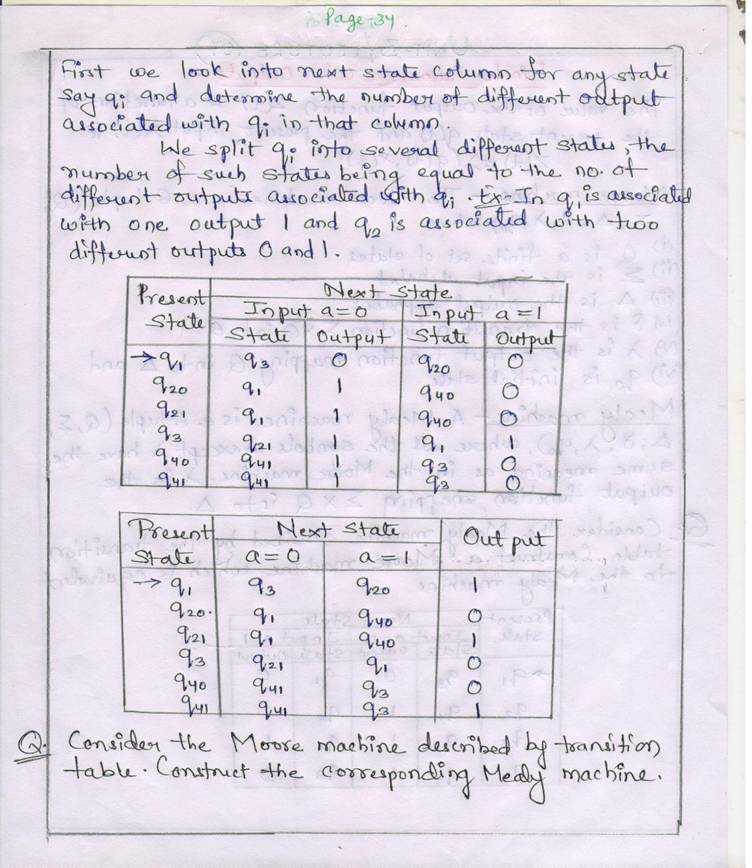 Page-34.
First we look into next state column for any state
say qi and determine the number of different output
associated with qi in that column.
We split qi into several different states, the
number of such states being equal to the no. of
different outputs associated with qi. Ex- In q1 is associated
with one output 1 and q2 is associated with two
different outputs 0 and 1.
Present State | Next State
Input a=0 | Input a=1
State | Output | State | Output
→q1 | q3 | 0 | q20 | 0
q20 | q1 | 1 | q40 | 0
q21 | q1 | 1 | q40 | 0
q3 | q21 | 1 | q1 | 1
q40 | q41 | 1 | q3 | 0
q41 | q41 | 1 | q3 | 0
Present State | Next State | Out put
a=0 | a=1
→q1 | q3 | q20 | 1
q20. | q1 | q40 | 0
q21 | q1 | q40 | 1
q3 | q21 | q1 | 0
q40 | q41 | q3 | 0
q41 | q41 | q3 | 1
Q. Consider the Moore machine described by transition
table. Construct the corresponding Mealy machine.